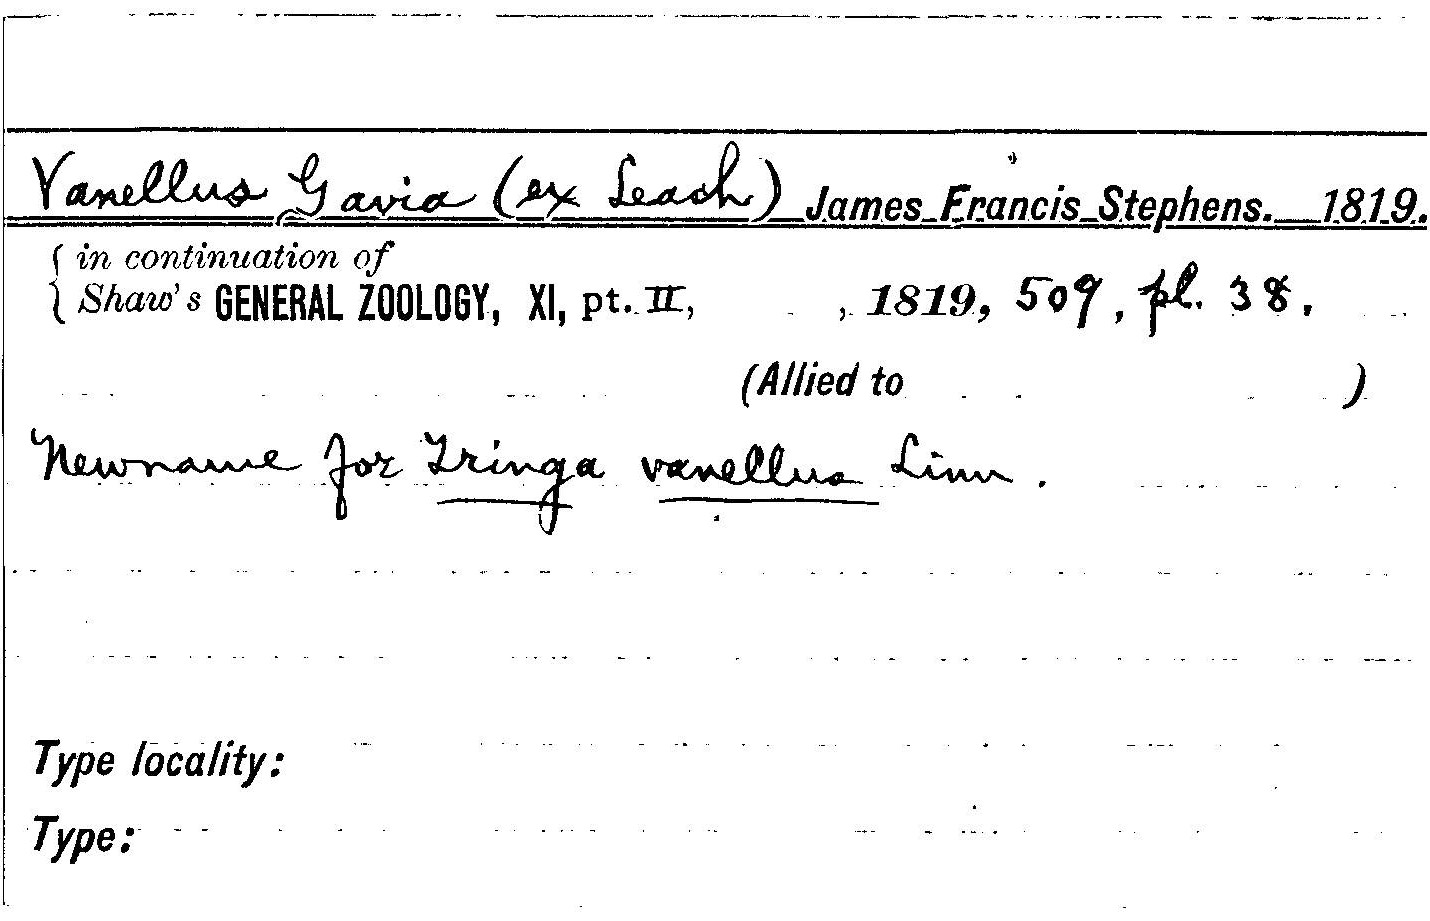 Vanellus Gavia (ex Leach) James Francis Stephens. 1819.
{ in continuation of
Shaw's GENERAL ZOOLOGY, XI, pt. II, , 1819, 509, pl. 38.
(Allied to )
Newname for Tringa vanellus Linn.
Type locality:
Type: